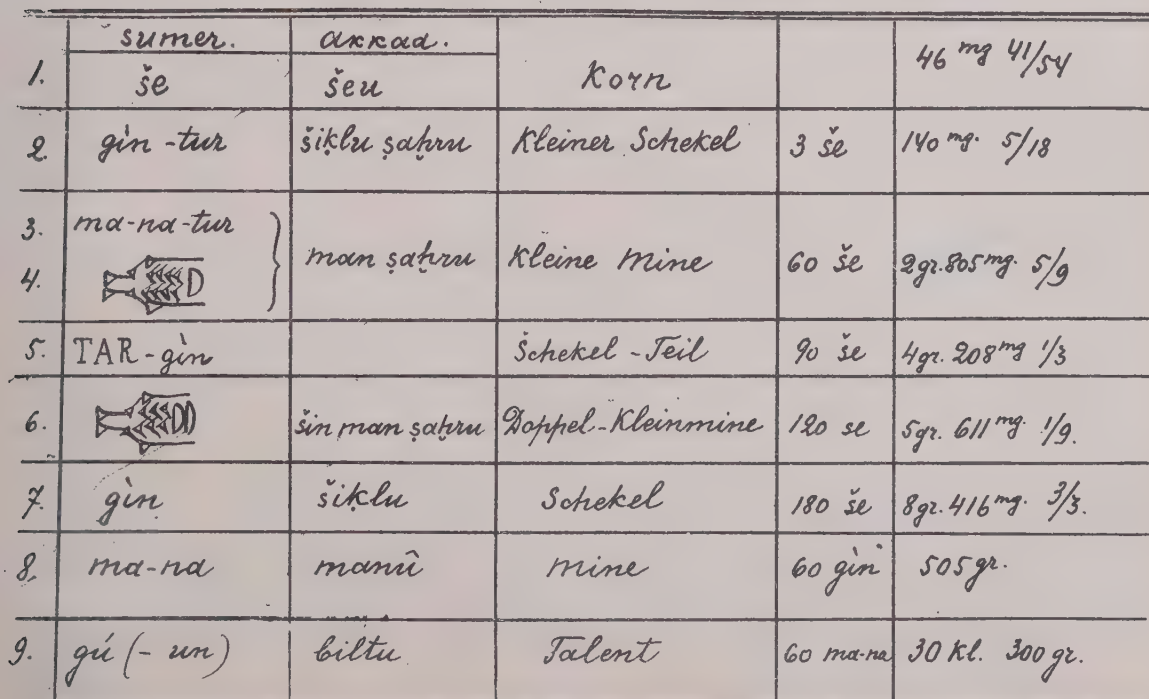 sumer. akkad.
1. še šeu Korn 46 mg 41/54
2. gìn-tur šiḳlu ṣaḫru Kleiner Schekel 3 še 140 mg. 5/18
3. ma-na-tur
4. man ṣaḫru Kleine Mine 60 še 2gr. 805 mg. 5/9
5. TAR-gìn Schekel-Teil 90 še 4gr. 208 mg 1/3
6. šin man ṣaḫru Doppel-Kleinmine 120 se 5gr. 611 mg. 1/9.
7. gìn šiḳlu Schekel 180 še 8gr. 416 mg. 3/3.
8. ma-na manû Mine 60 gìn 505 gr.
9. gú (-un) biltu Talent 60 ma-na 30 kl. 300 gr.